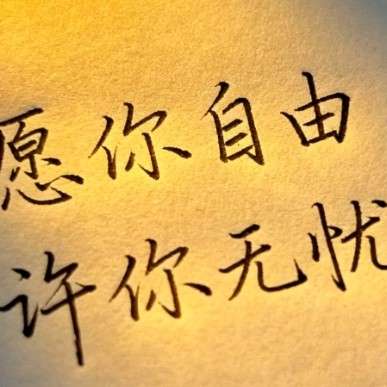 愿你自由
许你无忧